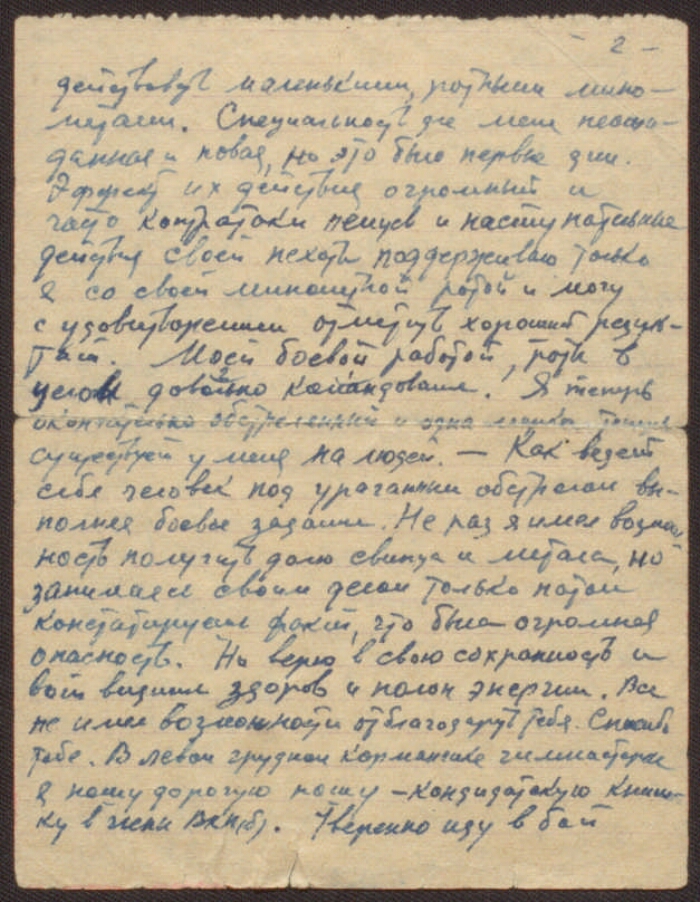 - 2 -
действовать маленькими, ротными мино-
метами. Специальность для меня неожи-
данная и новая, но это было первые дни.
Эффект их действия огромный и
часто контратаки немцев и наступательные
действия своей пехоты поддерживаю только
я со своей минометной ротой и могу
с удовлетворением отметить хороший резуль-
тат. Моей боевой работой, роты в
целом довольно командование. Я теперь
окончательно обстрелянный и одна только
существует у меня на людей. — Как ведет
себя человек под ураганным обстрелом вы-
полняя боевые задания. Не раз я имел возмож
ность получить долю свинца и метала, но
занимаясь своим делом только потом
констатируешь факт, что была огромная
опасность. Но верю в свою сохранность и
вот видишь здоров и полон энергии. Все
не имел возможности отблагодарить тебя. Спасибо
тебе. В левом грудном карманчике гимнастерки
я ношу дорогую ношу - кандидатскую книж-
ку в члены ВКП(б). Уверенно иду в бой